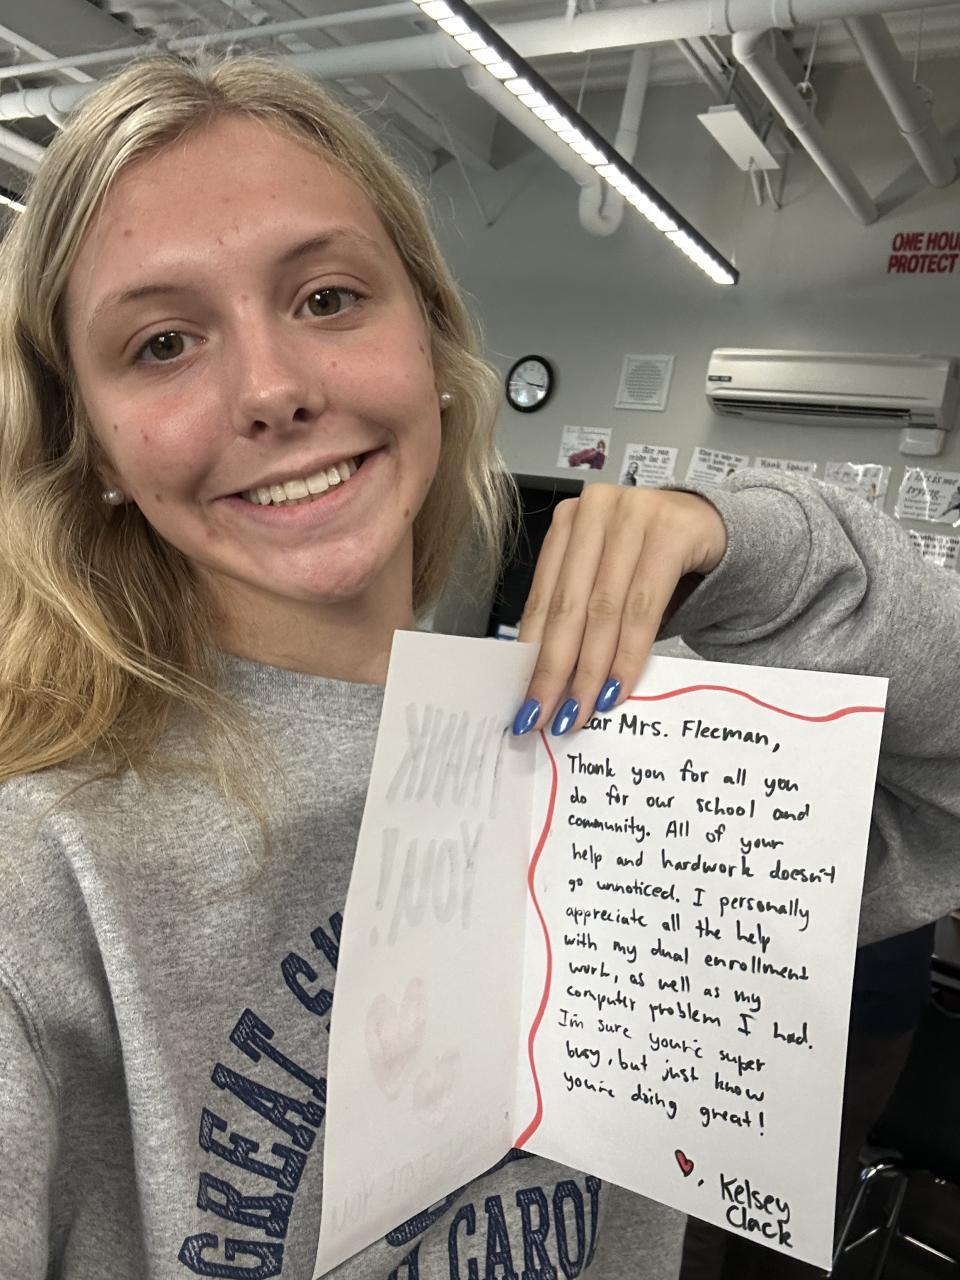 ONE HOU
PROTECT
THANK
YOU!
ear Mrs. Fleeman,
Thank you for all you
do for our school and
community. All of your
help and hardwork doesn't
go unnoticed. I personally
appreciate all the help
with my dual enrollment
work, as well as my
computer problem I had.
I'm sure you're super
busy, but just know
you're doing great!
, Kelsey
Clack
GREAT SM
CAROL